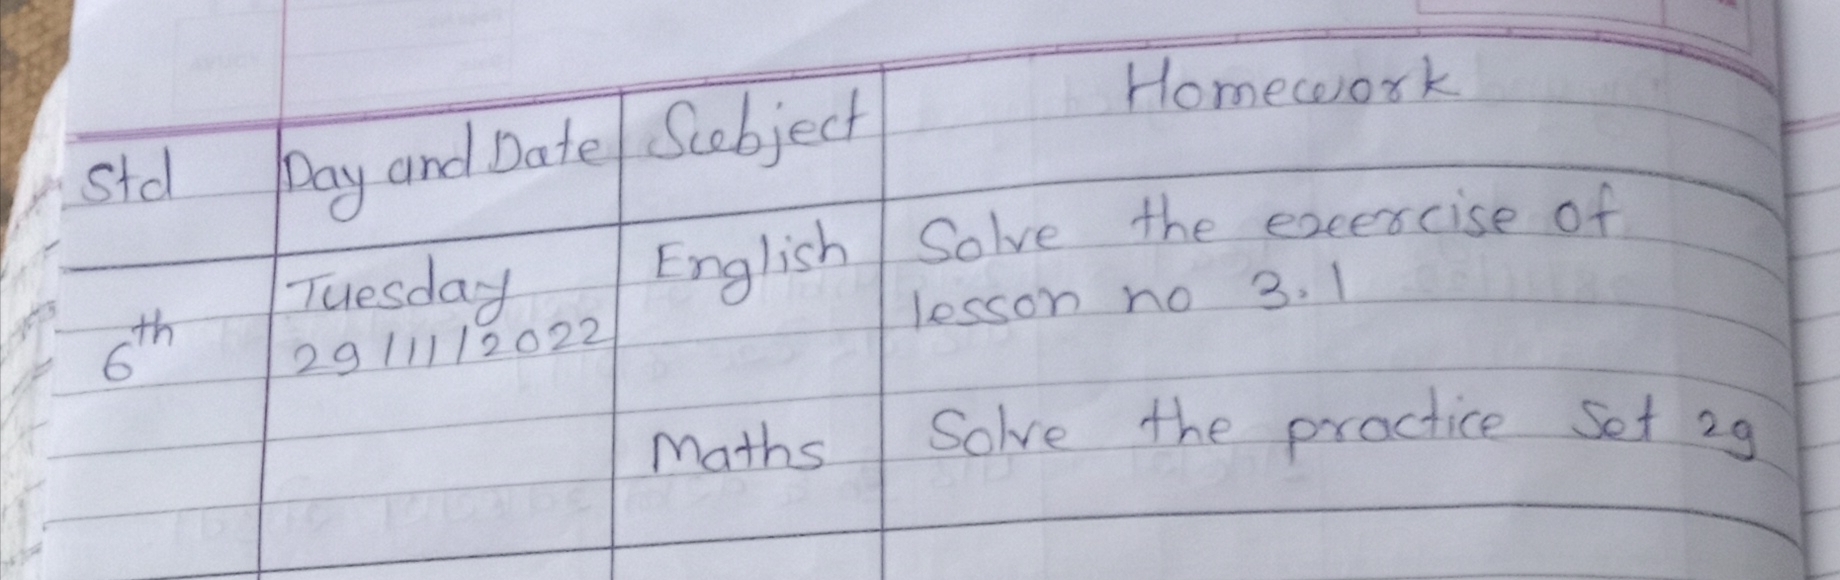 Std Day and Date Subject Homework
Tuesday English Solve the exercise of
6th 29/11/2022 lesson no 3.1
Maths Solve the practice Set 29